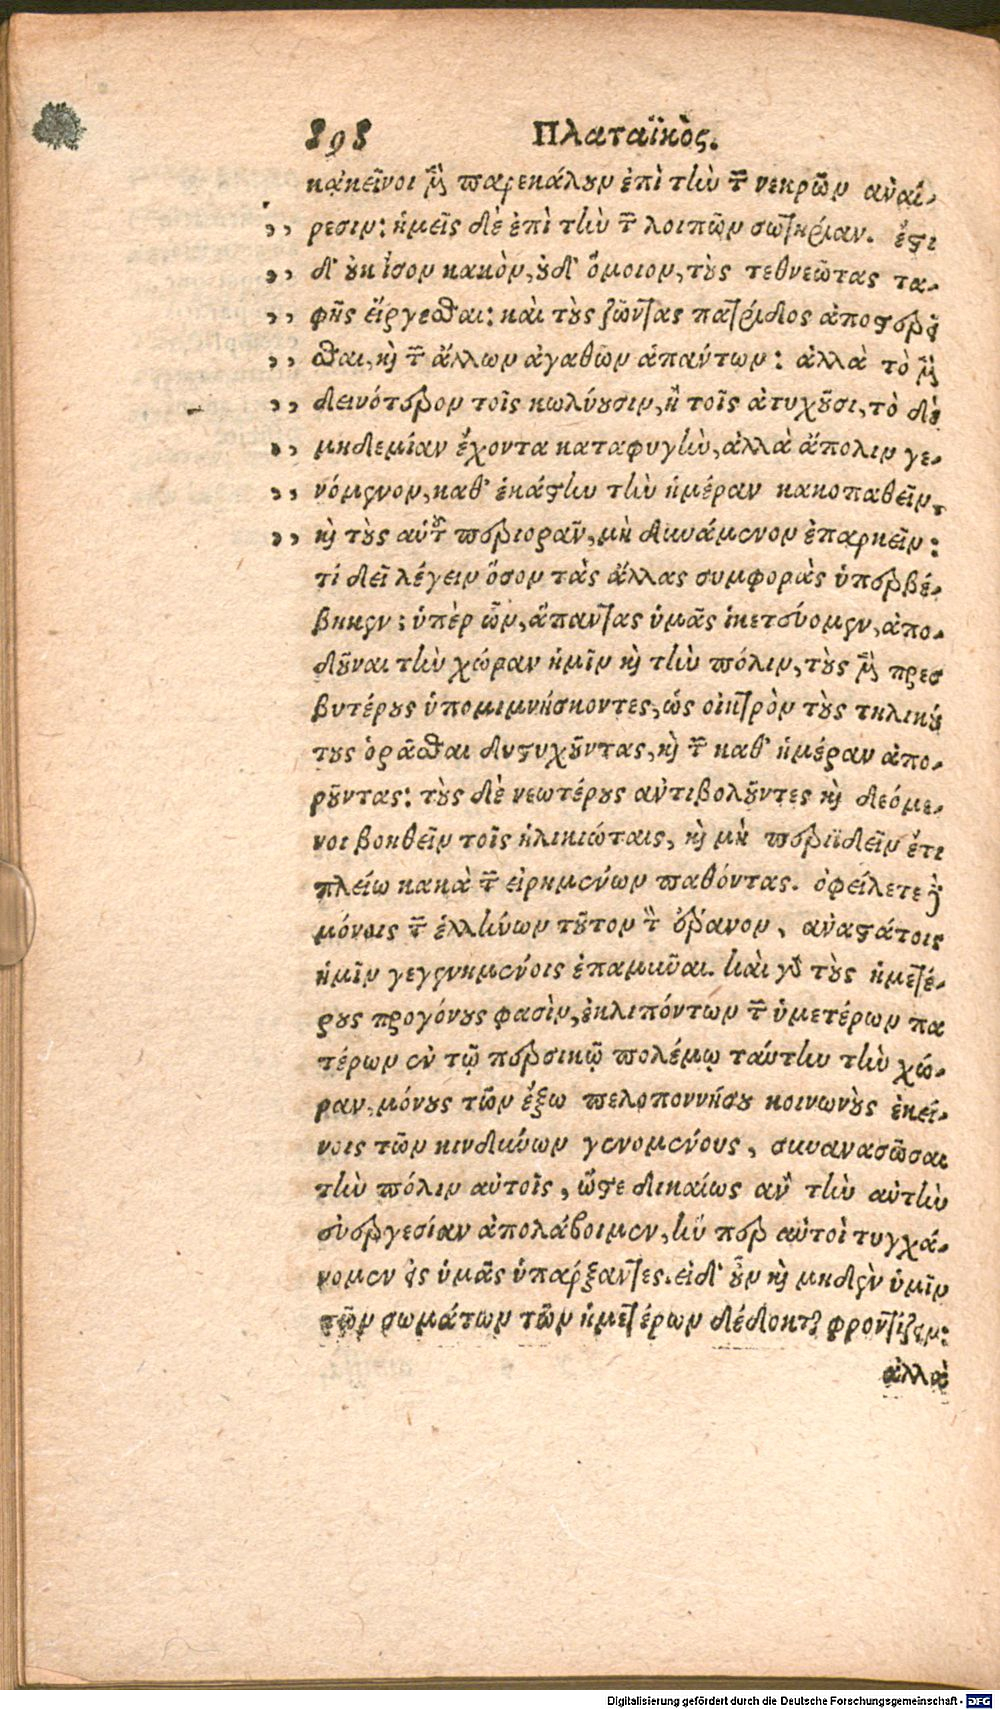 898 Πλαταϊκὸς.
κακεῖνοι μὲν παρεκάλουν ἐπὶ τὴν τῶν νεκρῶν ἀναί-
ρεσιν: ἡμεῖς δὲ ἐπὶ τὴν τῶν λοιπῶν σωτηρίαν. ἔστι
δ' οὐκ ἴσον κακὸν, οὐδ' ὅμοιον, τοὺς τεθνεῶτας τα-
φῆς εἴργεσθαι: καὶ τοὺς ζῶντας πατρίδος ἀποστερεῖ
σθαι, καὶ τῶν ἄλλων ἀγαθῶν ἁπάντων: ἀλλὰ τὸ μὲν
δεινότερον τοῖς κωλύουσιν, ἢ τοῖς ἀτυχοῦσι, τὸ δὲ
μηδεμίαν ἔχοντα καταφυγὴν, ἀλλὰ ἄπολιν γε-
νόμενον, καθ' ἑκάστην τὴν ἡμέραν κακοπαθεῖν,
καὶ τοὺς αὑτοῦ περιορᾶν, μὴ δυνάμενον ἐπαρκεῖν:
τί δεῖ λέγειν ὅσον τὰς ἄλλας συμφορὰς ὑπερβέ-
βηκεν; ὑπὲρ ὧν, ἅπαντας ὑμᾶς ἱκετεύομεν, ἀπο-
δοῦναι τὴν χώραν ἡμῖν καὶ τὴν πόλιν, τοὺς μὲν πρεσ
βυτέρους ὑπομιμνήσκοντες, ὡς οἰκτρὸν τοὺς τηλικού
τους ὁρᾶσθαι δυστυχοῦντας, καὶ τῶν καθ' ἡμέραν ἀπο-
ροῦντας: τοὺς δὲ νεωτέρους ἀντιβολοῦντες καὶ δεόμε-
νοι βοηθεῖν τοῖς ἡλικιώταις, καὶ μὴ περιϊδεῖν ἔτι
πλείω κακὰ τῶν εἰρημένων παθόντας. ὀφείλετε δὲ
μόνοις τῶν ἑλλήνων τοῦτον τὸν ἔρανον, ἀναστάτοις
ἡμῖν γεγενημένοις ἐπαμῦναι. καὶ γὰρ τοὺς ἡμετέ-
ρους προγόνους φασὶν, ἐκλιπόντων τῶν ὑμετέρων πα
τέρων ἐν τῷ περσικῷ πολέμῳ ταύτην τὴν χώ-
ραν, μόνους τῶν ἔξω πελοποννήσου κοινωνοὺς ἐκεί-
νοις τῶν κινδύνων γενομένους, συνανασῶσαι
τὴν πόλιν αὐτοῖς, ὥστε δικαίως ἂν τὴν αὐτὴν
εὐεργεσίαν ἀπολάβοιμεν, ἥν περ αὐτοὶ τυγχά-
νομεν εἰς ὑμᾶς ὑπάρξαντες. εἰ δ' οὖν καὶ μηδὲν ὑμῖν
τῶν σωμάτων τῶν ἡμετέρων δέδοκται φροντίζειν:
ἀλλὰ
Digitalisierung gefördert durch die Deutsche Forschungsgemeinschaft - DFG